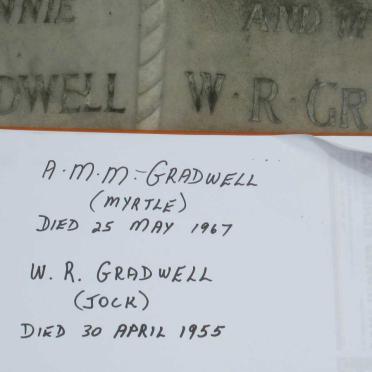 NNIE
DWELL
AND W
W·R·GR
A·M·M·GRADWELL
(MYRTLE)
DIED 25 MAY 1967
W. R. GRADWELL
(JOCK)
DIED 30 APRIL 1955